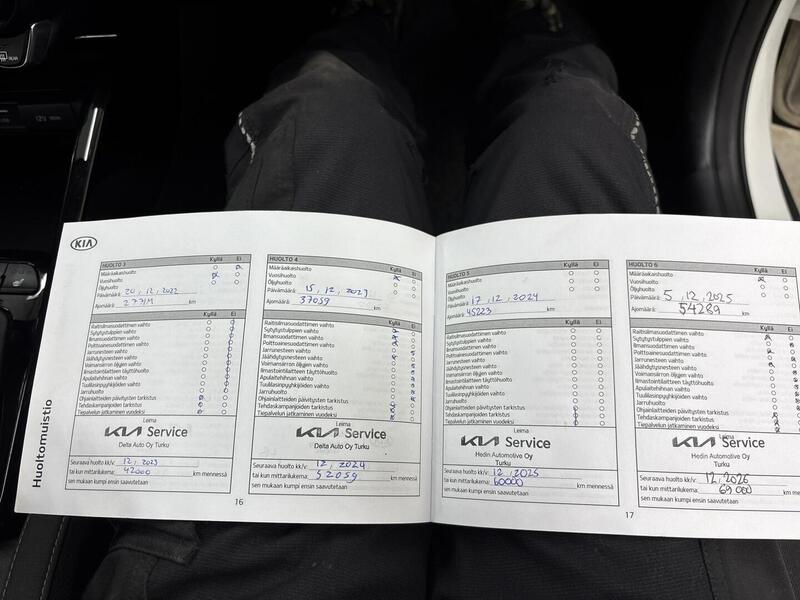 KIA
HUOLTO 3 Kyllä Ei
Määräaikaishuolto
Vuosihuolto
Öljyhuolto
Päivämäärä: 20, 12, 2022
Ajomäärä: km
Raitisilmasuodattimen vaihto
Sytytystulppien vaihto
Ilmansuodattimen vaihto
Polttoainesuodattimen vaihto
Jarrunesteen vaihto
Jäähdytysnesteen vaihto
Voimansiirron öljyjen vaihto
Ilmastointilaitteen täyttöhuolto
Apulaitehihnan vaihto
Tuulilasinpyyhkijöiden vaihto
Jarruhuolto
Ohjainlaitteiden päivitysten tarkistus
Tehdaskampanjoiden tarkistus
Tiepalvelun jatkaminen vuodeksi
Leima
KIA Service
Delta Auto Oy Turku
Seuraava huolto kk/v: 12, 2023
tai kun mittarilukema: 42000 km mennessä
sen mukaan kumpi ensin saavutetaan
HUOLTO 4 Kyllä Ei
Määräaikaishuolto
Vuosihuolto
Öljyhuolto
Päivämäärä: 15, 12, 2023
Ajomäärä: 37059 km
Kyllä Ei
Raitisilmasuodattimen vaihto
Sytytystulppien vaihto
Ilmansuodattimen vaihto
Polttoainesuodattimen vaihto
Jarrunesteen vaihto
Jäähdytysnesteen vaihto
Voimansiirron öljyjen vaihto
Ilmastointilaitteen täyttöhuolto
Apulaitehihnan vaihto
Tuulilasinpyyhkijöiden vaihto
Jarruhuolto
Ohjainlaitteiden päivitysten tarkistus
Tehdaskampanjoiden tarkistus
Tiepalvelun jatkaminen vuodeksi
Leima
KIA Service
Delta Auto Oy Turku
Seuraava huolto kk/v: 12, 2024
tai kun mittarilukema: 52059 km mennessä
sen mukaan kumpi ensin saavutetaan
Huoltomuistio
16
HUOLTO 5 Kyllä Ei
Määräaikaishuolto
Vuosihuolto
Öljyhuolto
Päivämäärä: 17, 12, 2024
Ajomäärä: 45223 km
Kyllä Ei
Raitisilmasuodattimen vaihto
Sytytystulppien vaihto
Ilmansuodattimen vaihto
Polttoainesuodattimen vaihto
Jarrunesteen vaihto
Jäähdytysnesteen vaihto
Voimansiirron öljyjen vaihto
Ilmastointilaitteen täyttöhuolto
Apulaitehihnan vaihto
Tuulilasinpyyhkijöiden vaihto
Jarruhuolto
Ohjainlaitteiden päivitysten tarkistus
Tehdaskampanjoiden tarkistus
Tiepalvelun jatkaminen vuodeksi
Leima
KIA Service
Hedin Automotive Oy
Turku
Seuraava huolto kk/v: 12, 2025
tai kun mittarilukema: 60000 km mennessä
sen mukaan kumpi ensin saavutetaan
HUOLTO 6 Kyllä Ei
Määräaikaishuolto
Vuosihuolto
Öljyhuolto
Päivämäärä: 5, 12, 2025
Ajomäärä: 54289 km
Kyllä Ei
Raitisilmasuodattimen vaihto
Sytytystulppien vaihto
Ilmansuodattimen vaihto
Polttoainesuodattimen vaihto
Jarrunesteen vaihto
Jäähdytysnesteen vaihto
Voimansiirron öljyjen vaihto
Ilmastointilaitteen täyttöhuolto
Apulaitehihnan vaihto
Tuulilasinpyyhkijöiden vaihto
Jarruhuolto
Ohjainlaitteiden päivitysten tarkistus
Tehdaskampanjoiden tarkistus
Tiepalvelun jatkaminen vuodeksi
Leima
KIA Service
Hedin Automotive Oy
Turku
Seuraava huolto kk/v: 12, 2026
tai kun mittarilukema: 69 000 km mennessä
sen mukaan kumpi ensin saavutetaan
17